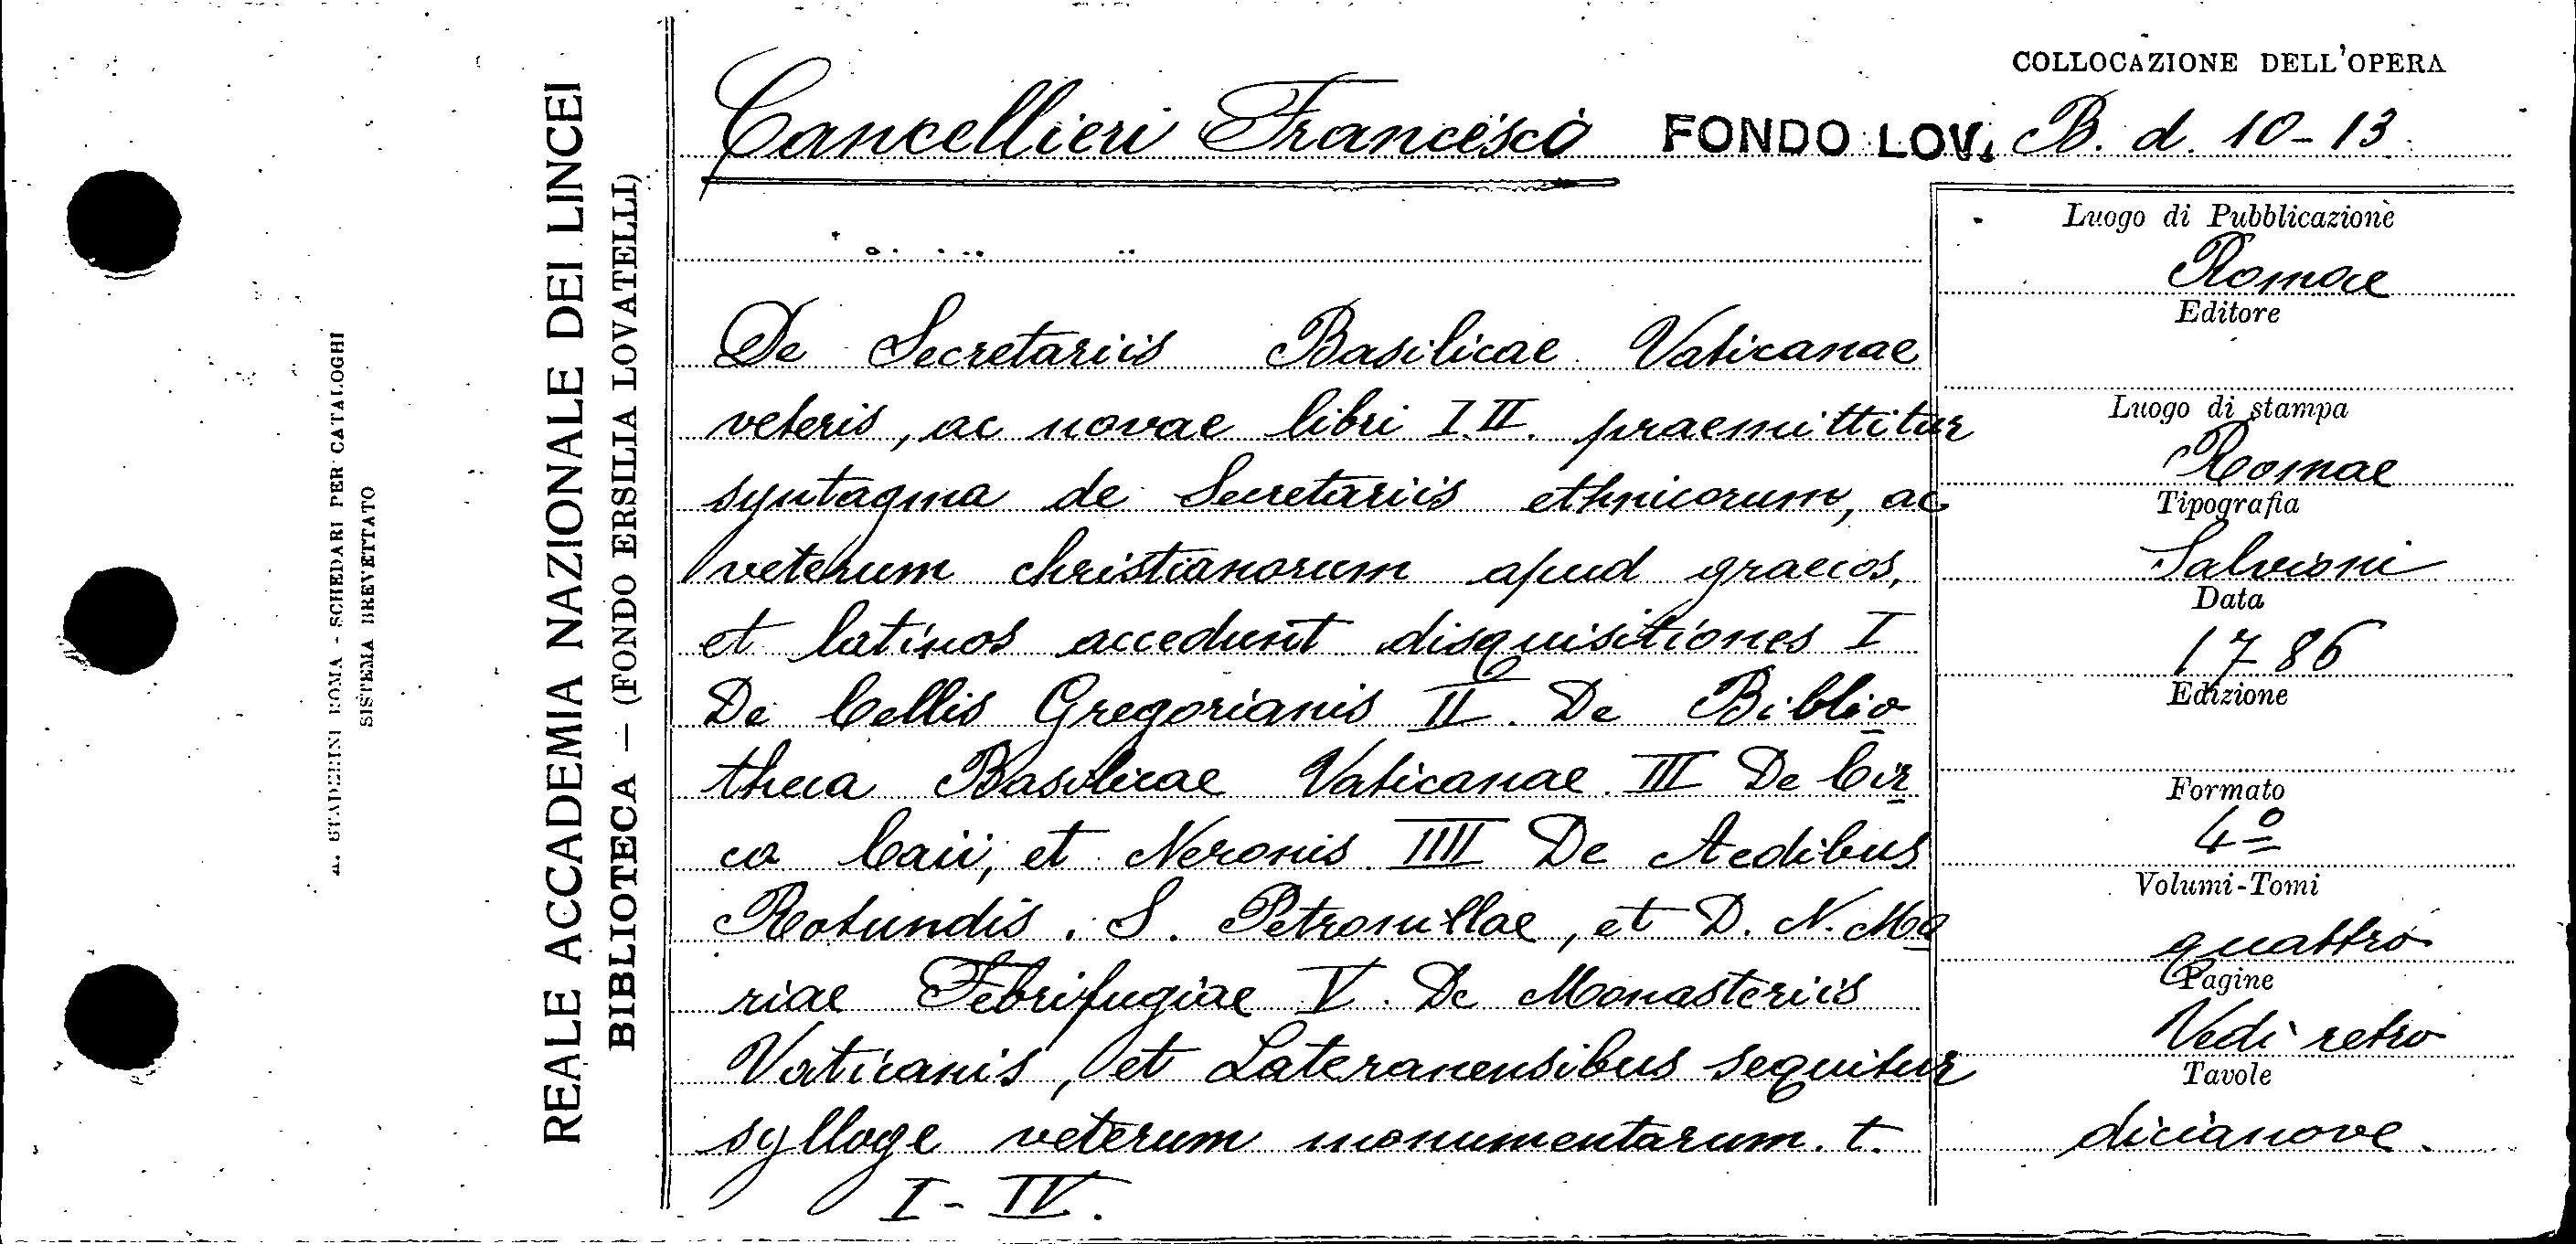 COLLOCAZIONE DELL'OPERA
Cancellieri Francesco FONDO LOV. B. d. 10-13
De Secretariis Basilicae Vaticanae
veteris, ac novae libri I.II. praemittitur
syntagma de Secretariis ethnicorum, ac
veterum christianorum apud graecos,
et latinos accedunt disquisitiones I
De Cellis Gregorianis II. De Biblio
theca Basilicae Vaticanae III De Cir
co Caii, et Neronis IIII De Aedibus
Rotundis. S. Petronillae, et D. N. Ma
riae Febrifugiae V. De Monasteriis
Vaticanis, et Lateranensibus sequitur
sylloge veterum monumentarum. t.
I - IV.
Luogo di Pubblicazione
Romae
Editore
Luogo di stampa
Romae
Tipografia
Salvioni
Data
1786
Edizione
Formato
4º
Volumi-Tomi
quattro
Pagine
Vedi retro
Tavole
dicianove.
REALE ACCADEMIA NAZIONALE DEI LINCEI
BIBLIOTECA — (FONDO ERSILIA LOVATELLI)
STADERINI ROMA - SCHEDARI PER CATALOGHI
SISTEMA BREVETTATO